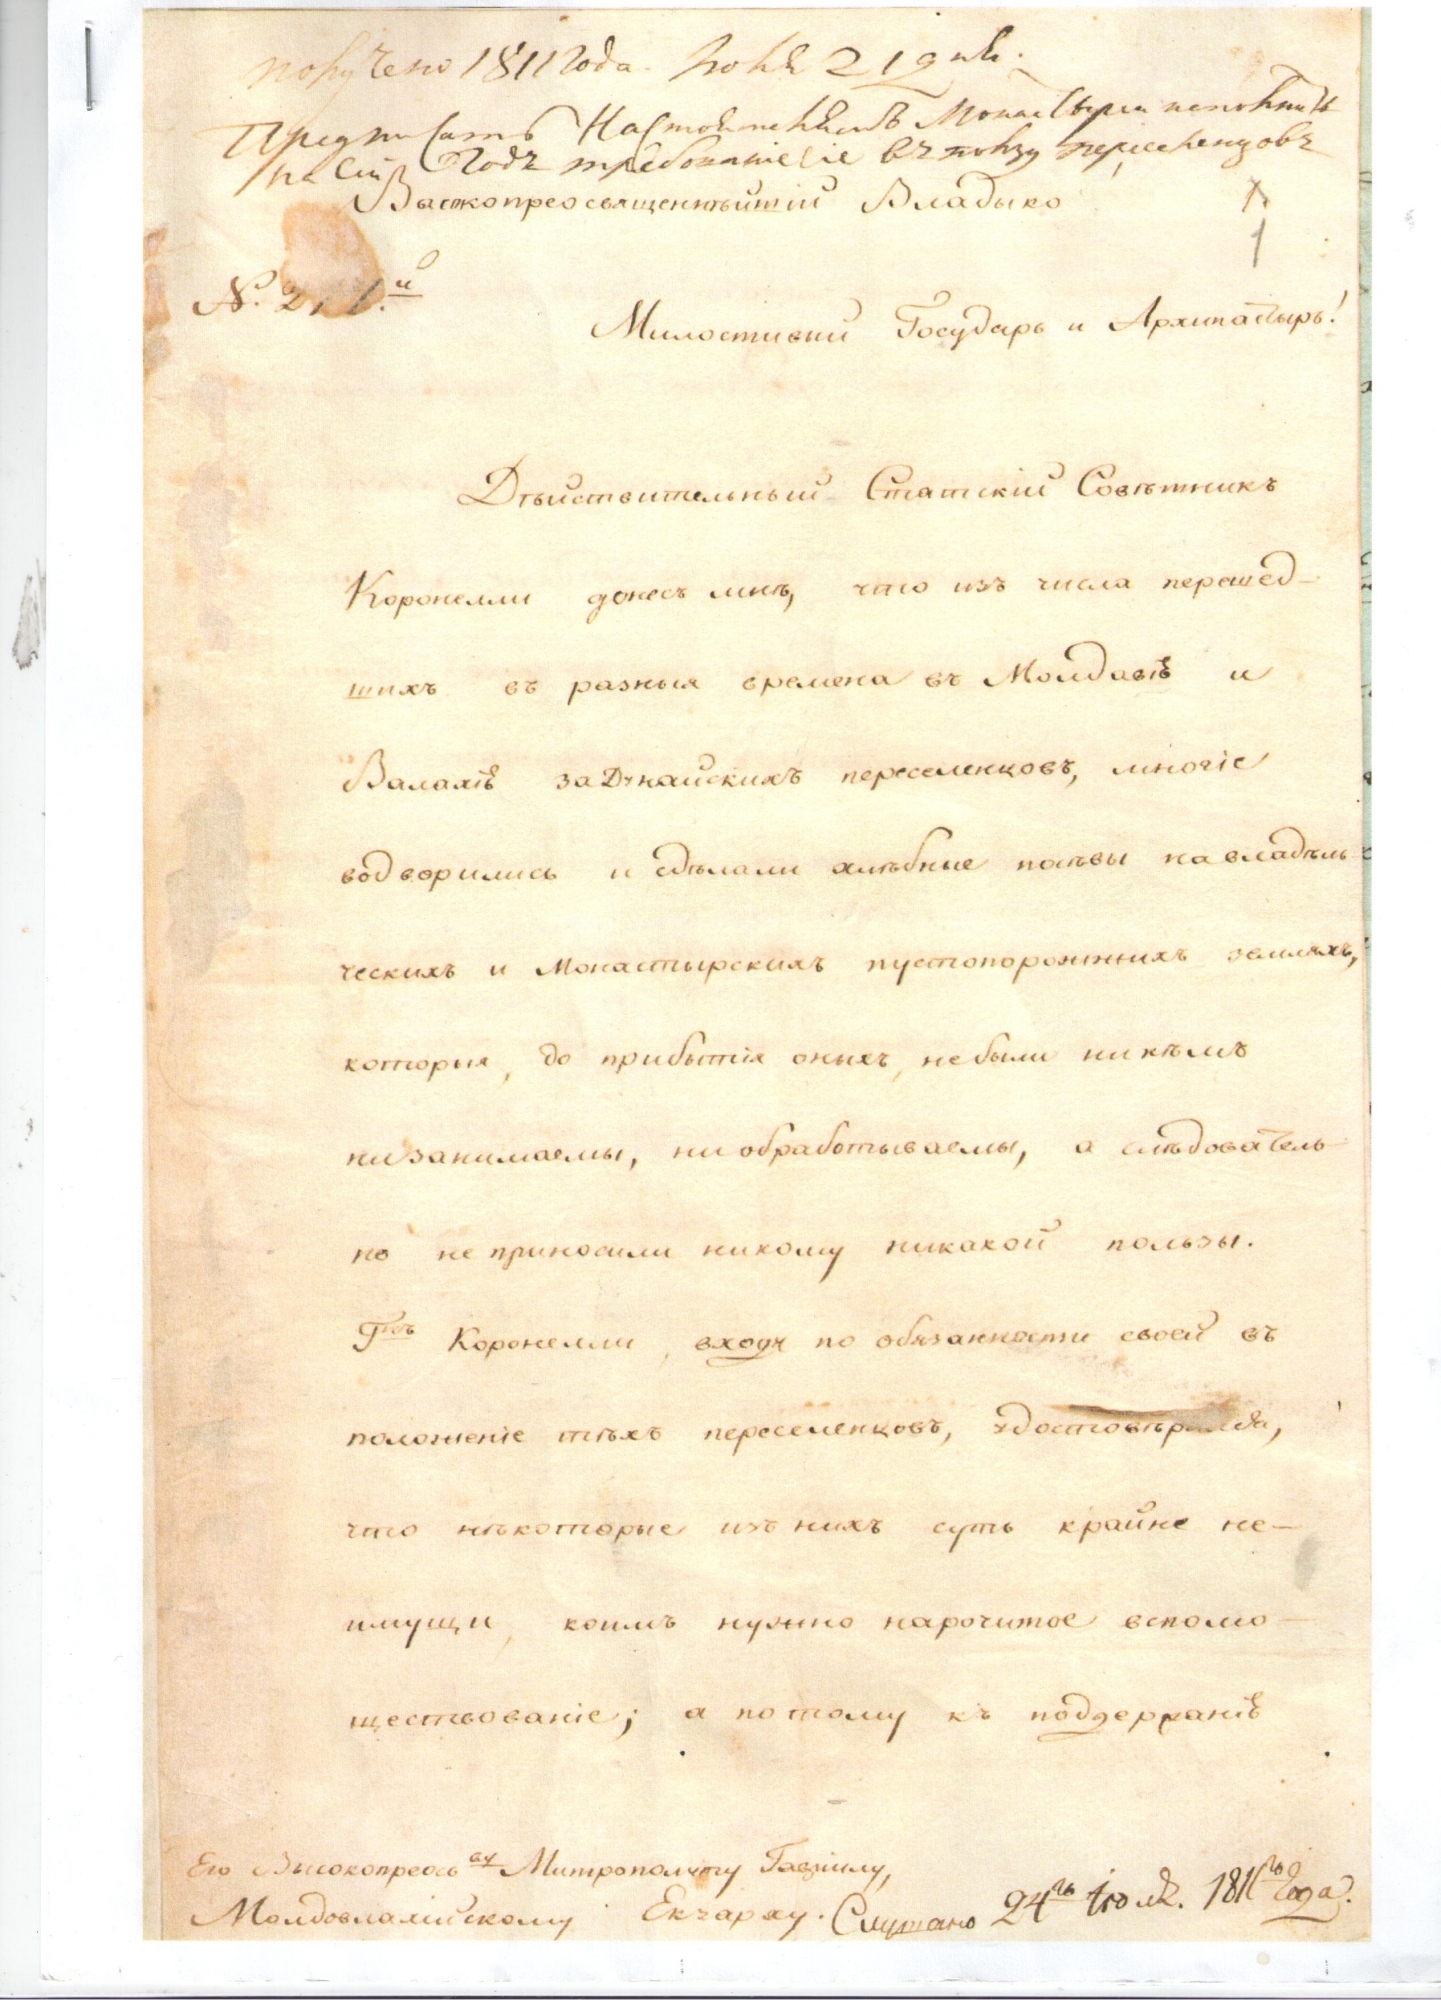 получено 1811 года. июля 21 дня.
Предписать Настоятелямъ Монастырей исполнить
на сей годъ требование сіе въ пользу переселенцовъ
Высокопреосвященнѣйшій Владыко
1
№. 211.й
Милостивый Государь и Архипастырь!
Дѣйствительный Статскій Совѣтникъ
Коронелли донесъ мнѣ, что изъ числа перешед-
шихъ въ разныя времена въ Молдавію и
Валахію задунайскихъ переселенцовъ, многіе
водворились и сдѣлали хлѣбные посѣвы на владѣль-
ческихъ и Монастырскихъ пустопорожнихъ земляхъ,
которыя, до прибытія оныхъ, небыли никѣмъ
ни занимаемы, ни обработываемы, а слѣдователь-
но не приносили никому никакой пользы.
Г-нъ Коронелли, входя по обязанности своей въ
положеніе тѣхъ переселенцовъ, удостовѣрился,
что нѣкоторые изъ нихъ суть крайне не-
имущи, коимъ нужно нарочитое вспомо-
ществованіе; а потому къ поддержанію
Его Высокопреосву Митрополиту Гавріилу,
Молдовлахійскому Екзарху.
Слушано 24го іюля. 1811го года.